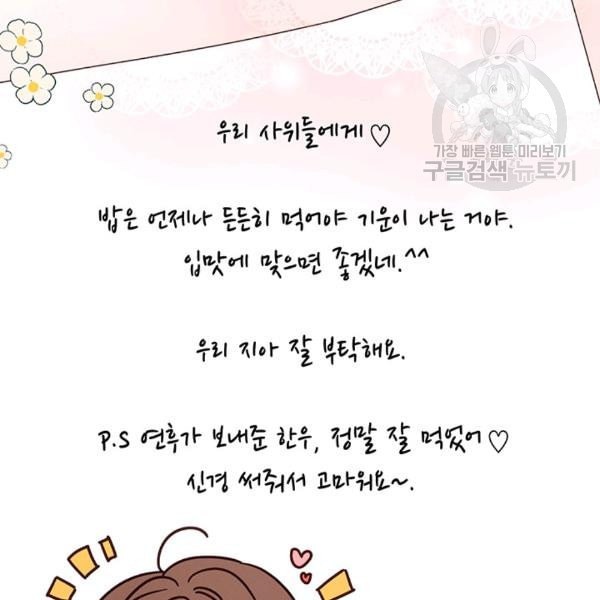 우리 사위들에게♡
가장 빠른 웹툰 미리보기
구글검색 뉴토끼
밥은 언제나 든든히 먹어야 기운이 나는 거야.
입맛에 맞으면 좋겠네.^^
우리 지아 잘 부탁해요.
P.S 연후가 보내준 한우, 정말 잘 먹었어♡
신경 써줘서 고마워요~.